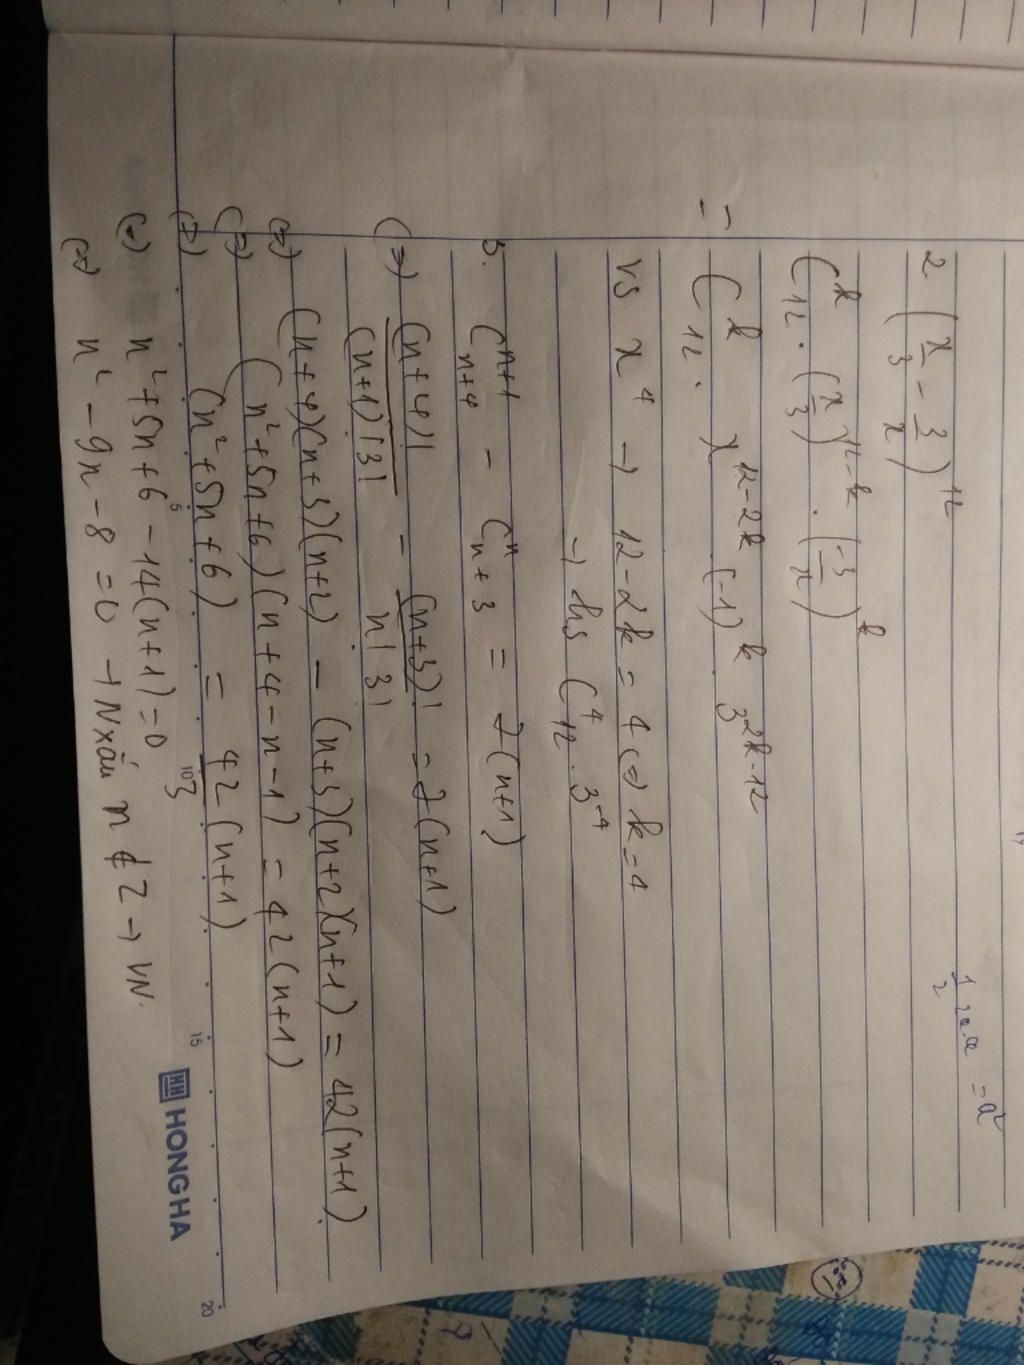 2 (x/3 - 3/x)^12
C_12^k . (x/3)^12-k . (-3/x)^k
= C_12^k . x^12-2k (-1)^k 3^2k-12
vs x^4 → 12-2k = 4 (=) k=4
→ hs C_12^4 . 3^-4
3. C_n+4^n+1 - C_n+3^n = 7(n+1)
(=) (n+4)!/(n+1)!3! - (n+3)!/n!3! = 7(n+1)
(=) (n+4)(n+3)(n+2) - (n+3)(n+2)(n+1) = 42(n+1)
(=) (n²+5n+6)(n+4-n-1) = 42(n+1)
(=) (n²+5n+6) = 42/3 (n+1)
(=) n²+5n+6 - 14(n+1) = 0
(=) n² - 9n - 8 = 0 → N xấu n ∉ Z → VN.
= a²
5
10
15
20
HONG HA